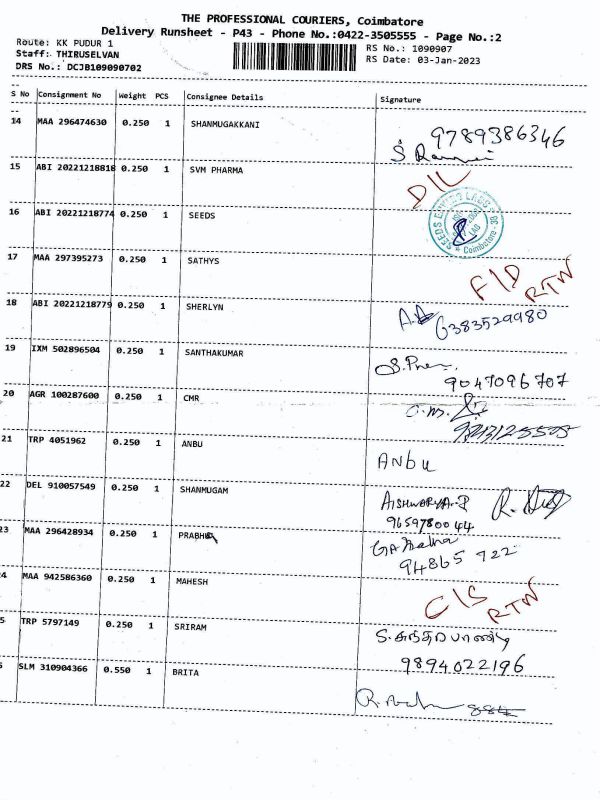 THE PROFESSIONAL COURIERS, Coimbatore
Delivery Runsheet - P43 - Phone No.:0422-3505555 - Page No.:2
Route: KK PUDUR 1 RS No.: 1090907
Staff: THIRUSELVAN RS Date: 03-Jan-2023
DRS No.: DCJB109090702
S No Consignment No Weight PCS Consignee Details Signature
14 MAA 296474630 0.250 1 SHANMUGAKKANI 9789386346
15 ABI 20221218818 0.250 1 SVM PHARMA D/L
16 ABI 20221218774 0.250 1 SEEDS
17 MAA 297395273 0.250 1 SATHYS F/D RTN
18 ABI 20221218779 0.250 1 SHERLYN 6383529980
19 IXM 502896504 0.250 1 SANTHAKUMAR
9047096707
20 AGR 100287600 0.250 1 CMR
21 TRP 4051962 0.250 1 ANBU ANbu
22 DEL 910057549 0.250 1 SHANMUGAM AISHWARYA.P
9659780044
23 MAA 296428934 0.250 1 PRABHU
94865 722
4 MAA 942586360 0.250 1 MAHESH C/S RTN
5 TRP 5797149 0.250 1 SRIRAM S.சுந்தரபாண்டி
9894022196
SLM 310904366 0.550 1 BRITA